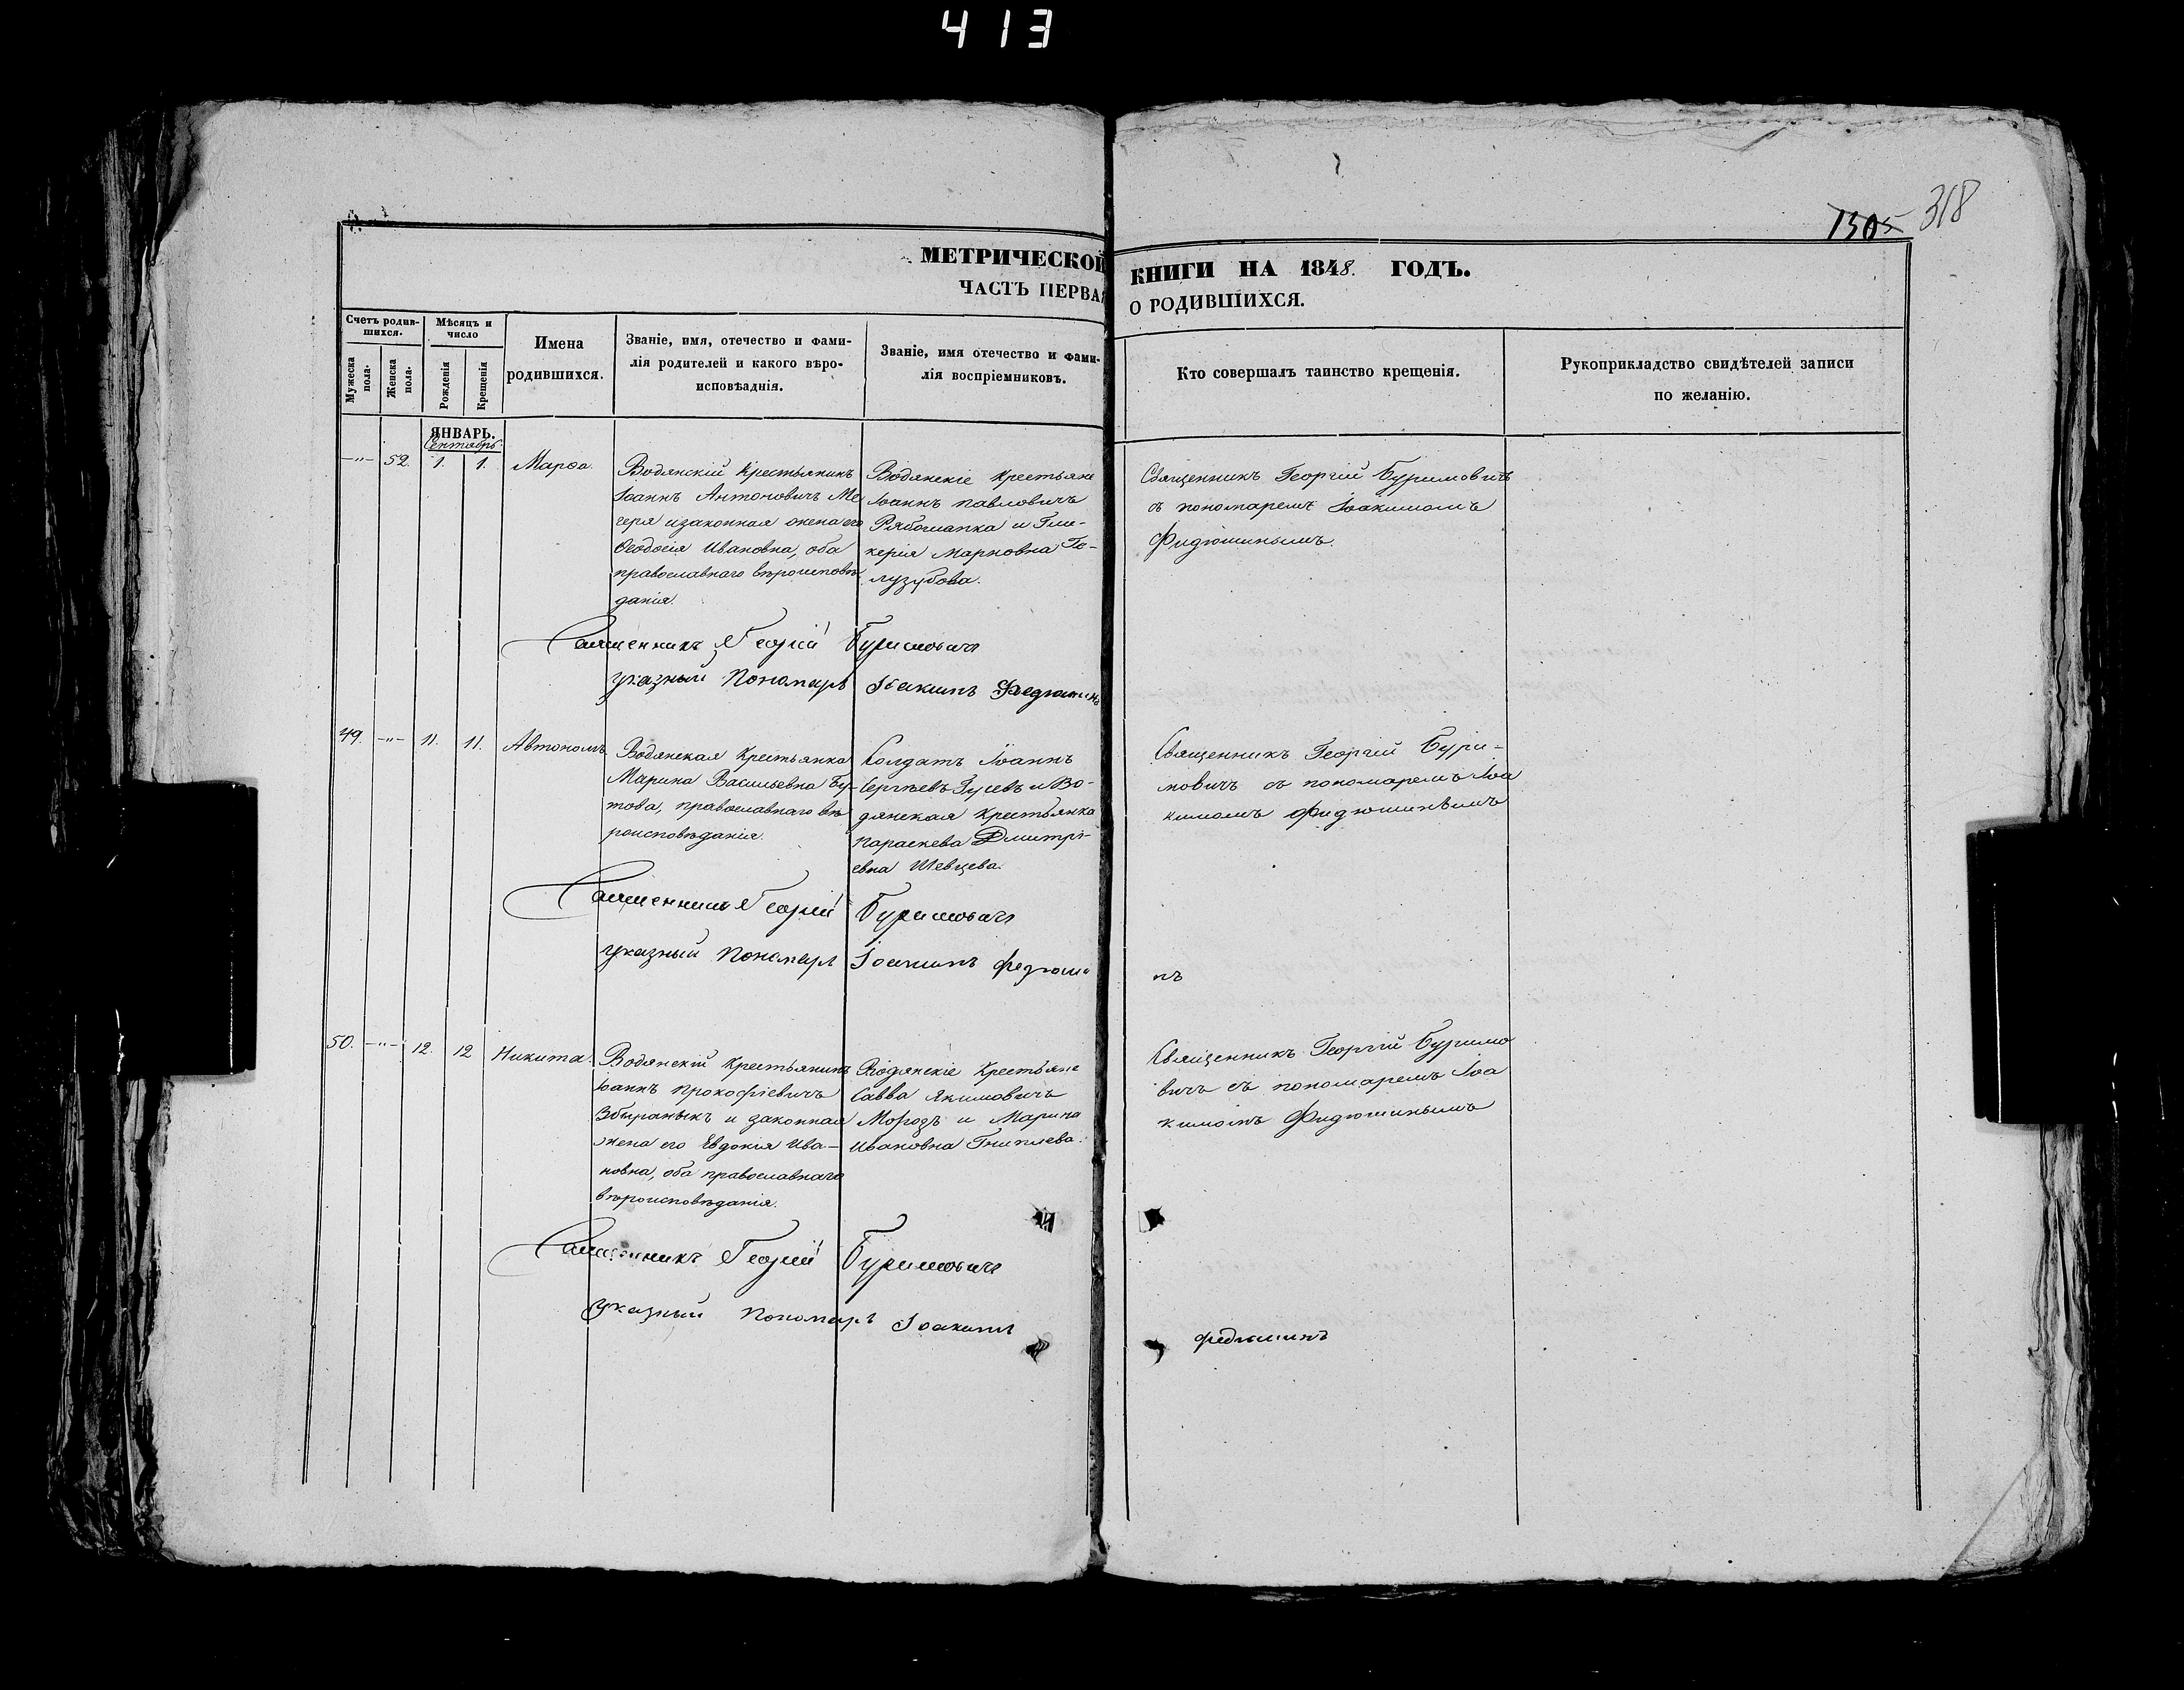 413
1305 318
МЕТРИЧЕСКОЙ КНИГИ НА 1848. ГОДЪ.
ЧАСТЬ ПЕРВАЯ О РОДИВШИХСЯ.
Счетъ родив-
шихся.
Мужеска пола.
Женска пола.
Мѣсяцъ и
число
Рожденія
Крещенія
Имена
родившихся.
Званіе, имя, отечество и фами-
лія родителей и какого вѣро-
исповѣданія.
Званіе, имя отечество и фами-
лія воспріемниковъ.
Кто совершалъ таинство крещенія.
Рукоприкладство свидѣтелей записи
по желанію.
ЯНВАРЬ.
Сентябрь.
—"— 52. 1. 1. Марѳа.
Водянскій крестьянинъ
Іоаннъ Антоновичъ Ме
геря и законная жена его
Ѳеодосія Ивановна, оба
православнаго вѣроисповѣ
данія.
Водянскіе крестьяне
Іоаннъ Павловичъ
Рябошапка и Гли-
керія Марковна
лузубова.
Священникъ Георгій Буримовичъ
съ пономаремъ Іоакимомъ
Фидюшинымъ.
Священникъ Георгій Буримовичъ
указный Пономарь Іоакимъ Федюшинъ
49. —"— 11. 11. Автономъ
Водянская крестьянка
Марина Васильевна Бу-
това, православнаго вѣ
роисповѣданія.
Солдатъ Іоаннъ
Сергѣевъ Гусевъ и Во-
дянская крестьянка
Параскева Дмитрі-
евна Шевцева.
Священникъ Георгій Бури-
мовичъ съ пономаремъ Іоа
кимомъ Фидюшинымъ
Священникъ Георгій Буримовичъ
указный Пономарь Іоакимъ Федюши
нъ
50. —"— 12. 12 Никита.
Водянскій крестьянинъ
Іоаннъ Прокофіевичъ
Збираныкъ и законная
жена его Евдокія Ива-
новна, оба православнаго
вѣроисповѣданія.
Водянскіе крестьяне
Савва Якимовичъ
Морозъ и Марина
Ивановна Гнилиева.
Священникъ Георгій Буримо
вичъ съ пономаремъ Іоа
кимомъ Фидюшинымъ
Священникъ Георгій Буримовичъ
указный Пономарь Іоакимъ Федюшинъ